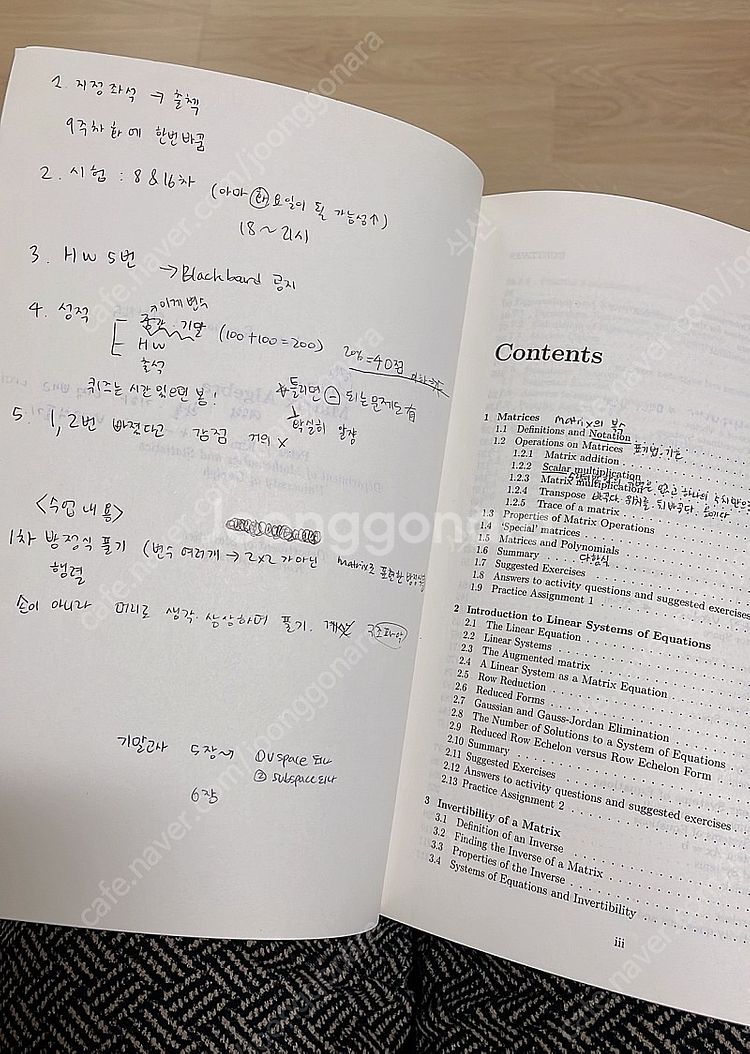 1. 지정좌석 → 출책
9주차 화에 한번바꿈
2. 시험 : 8 & 16차 (아마 화요일이 될 가능성↑)
18 ~ 21시
3. HW 5번 → Blackboard 공지
4. 성적
이게 변수
중간 · 기말 (100 + 100 = 200)
HW
출석
20% = 40점
퀴즈는 시간 있으면 봄!
틀리면 ⊖ 되는 문제도 有
확실히 알장
5. 1, 2번 빠졌다고 감점 거의 X
<수업 내용>
1차 방정식 풀기 (변수 여러개 → 2x2 가 아닌 matrix로 표현한
행렬
손이 아니라 머리로 생각·상상하며 풀기. 구조파악
기말고사 5장에 ① Vspace 되나
② subspace 되나
6장
Contents
1 Matrices matrix의 복수
1.1 Definitions and Notation
1.2 Operations on Matrices 표기법·기호
1.2.1 Matrix addition
1.2.2 Scalar multiplication
1.2.3 Matrix multiplication
1.2.4 Transpose 바꾸다. 위치를 뒤바꾸다. 옮기다.
1.2.5 Trace of a matrix
1.3 Properties of Matrix Operations
1.4 'Special' matrices
1.5 Matrices and Polynomials
1.6 Summary 다항식
1.7 Suggested Exercises
1.8 Answers to activity questions and suggested exercises
1.9 Practice Assignment 1
2 Introduction to Linear Systems of Equations
2.1 The Linear Equation
2.2 Linear Systems
2.3 The Augmented matrix
2.4 A Linear System as a Matrix Equation
2.5 Row Reduction
2.6 Reduced Forms
2.7 Gaussian and Gauss-Jordan Elimination
2.8 The Number of Solutions to a System of Equations
2.9 Reduced Row Echelon versus Row Echelon Form
2.10 Summary
2.11 Suggested Exercises
2.12 Answers to activity questions and suggested exercises
2.13 Practice Assignment 2
3 Invertibility of a Matrix
3.1 Definition of an Inverse
3.2 Finding the Inverse of a Matrix
3.3 Properties of the Inverse
3.4 Systems of Equations and Invertibility
iii
Joonggonara
cafe.naver.com/joonggonara
식신